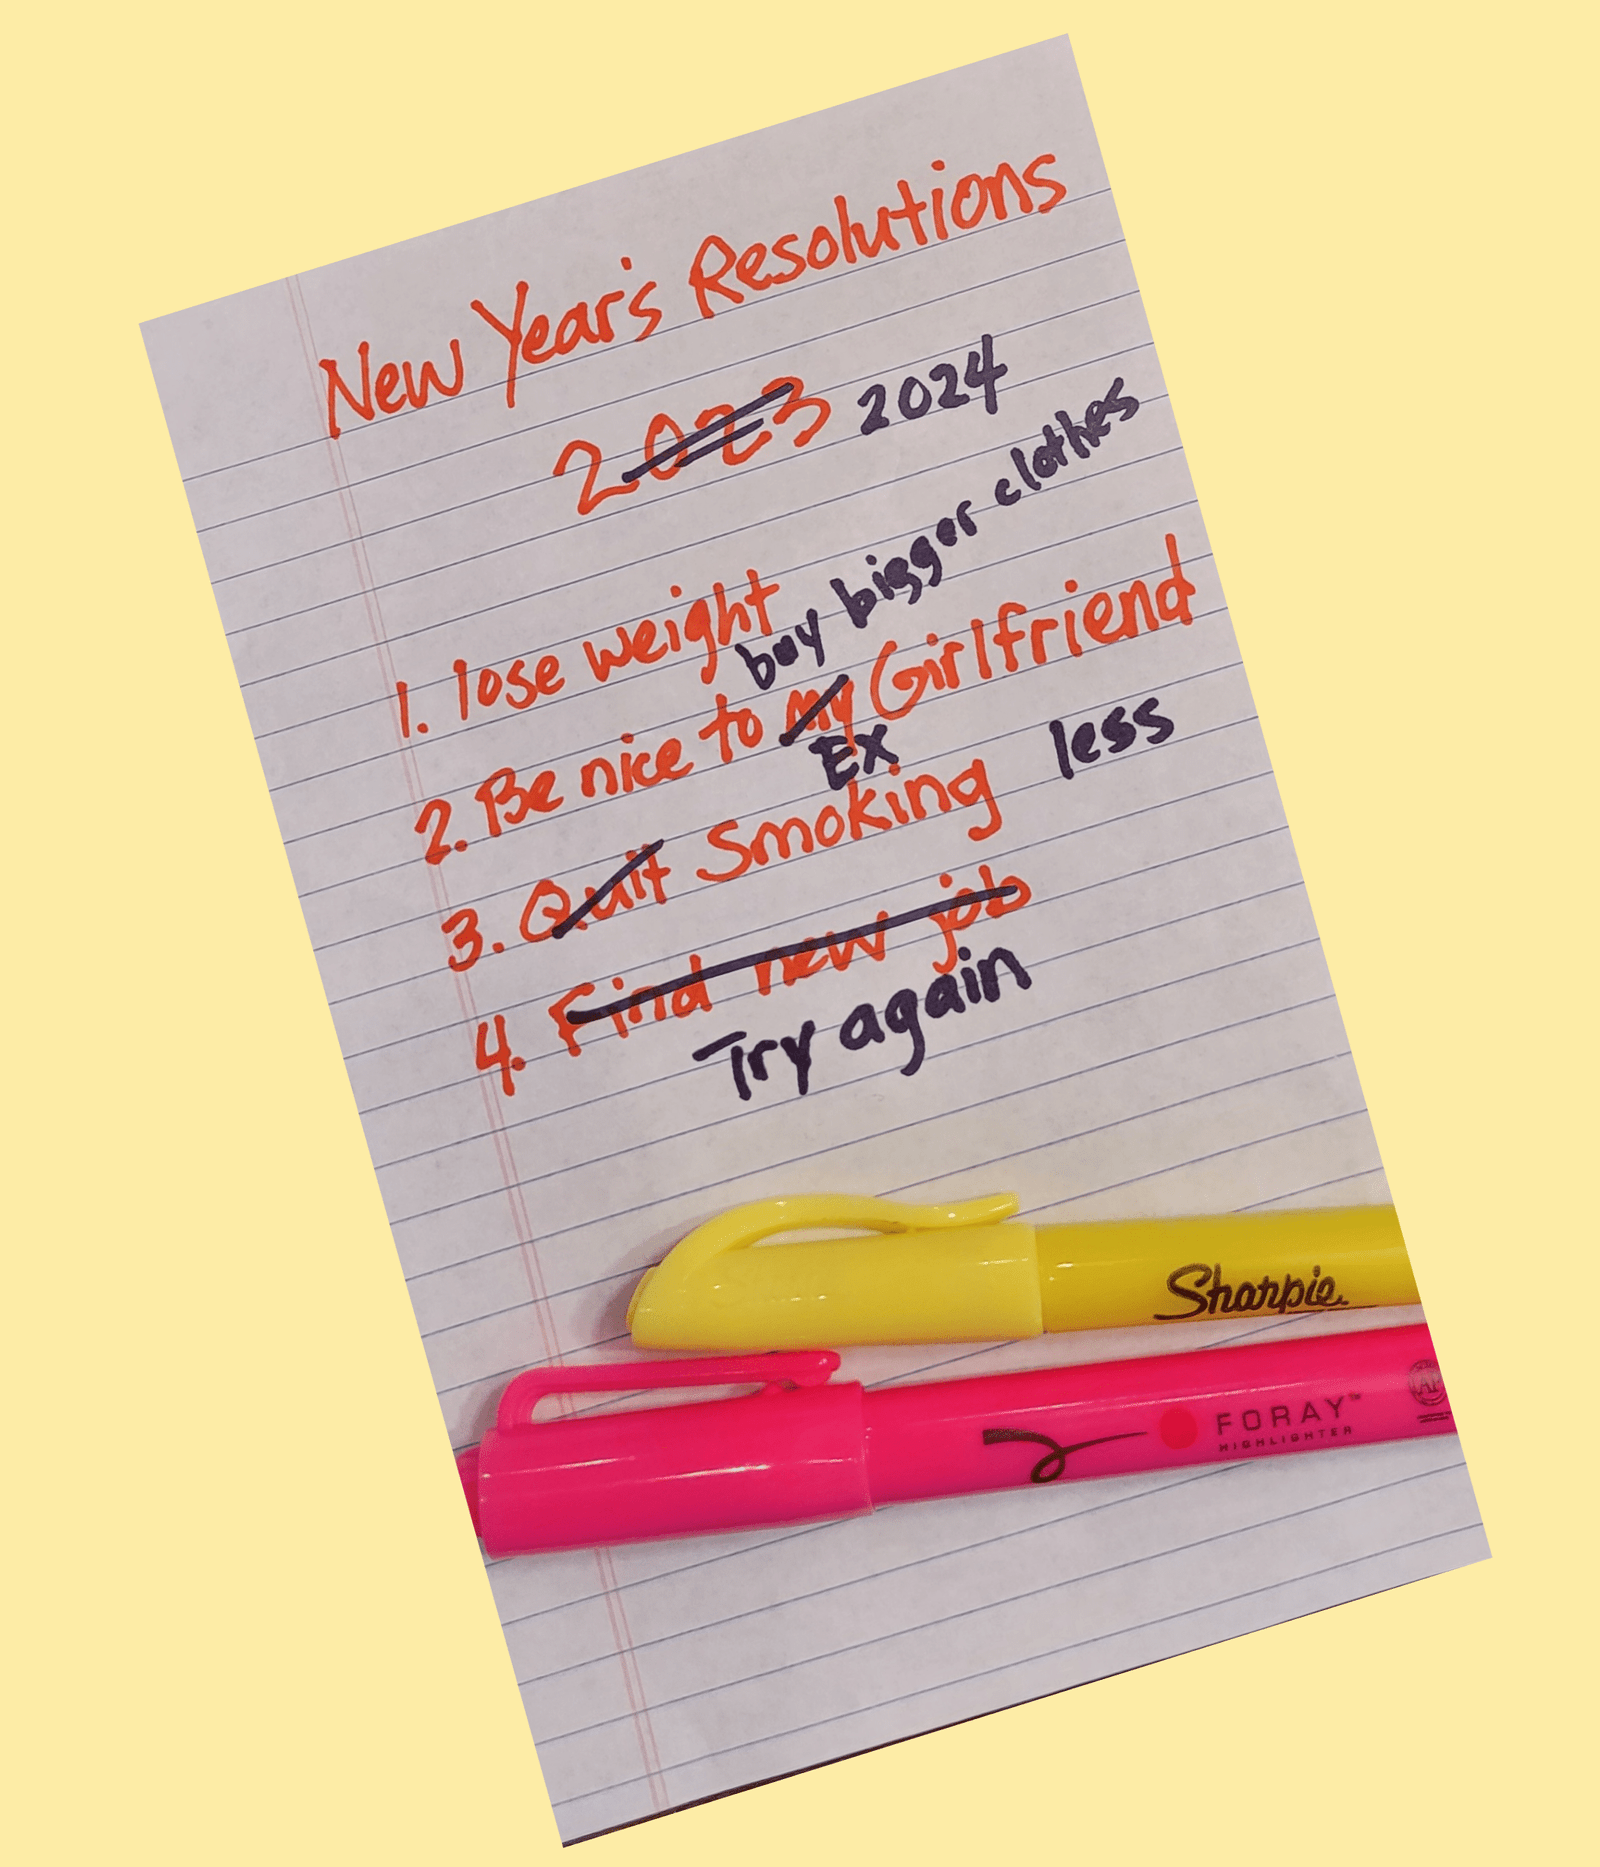 New Year's Resolutions
2023 2024
1. lose weight
buy bigger clothes
2. Be nice to my Girlfriend
Ex
3. Quit Smoking less
4. Find new job
Try again
Sharpie
FORAY™
HIGHLIGHTER
AP